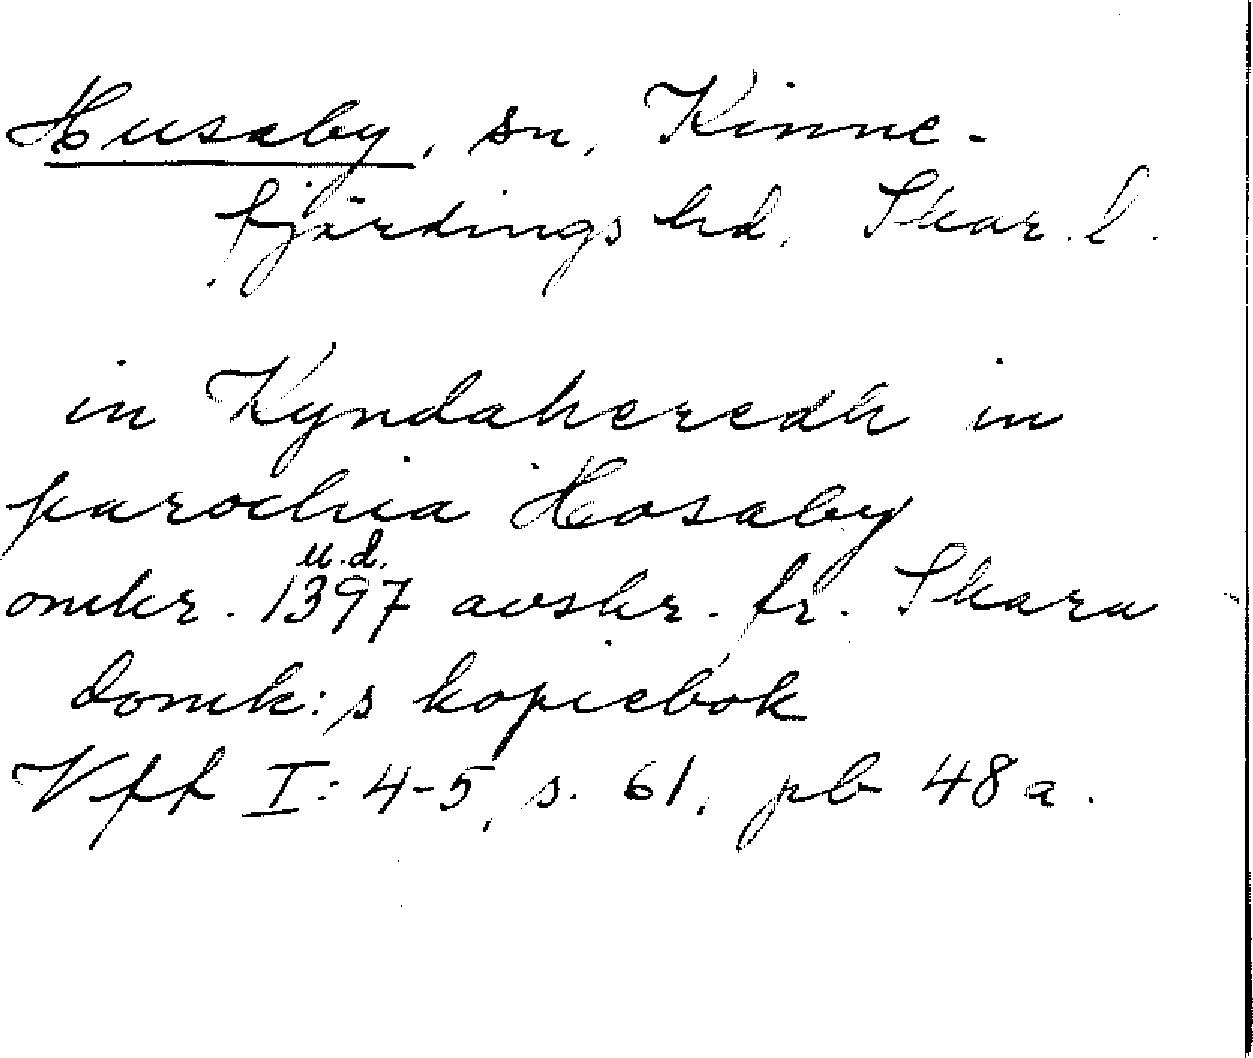 Husaby, sn, Kinne-
fjärdings hd, Skar. l.
in Kyndahæredh in
parochia Hosaby
u.d.
omkr. 1397 avskr. fr. Skara
domk:s kopiebok
Vff I: 4-5, s. 61, pb 48 a.